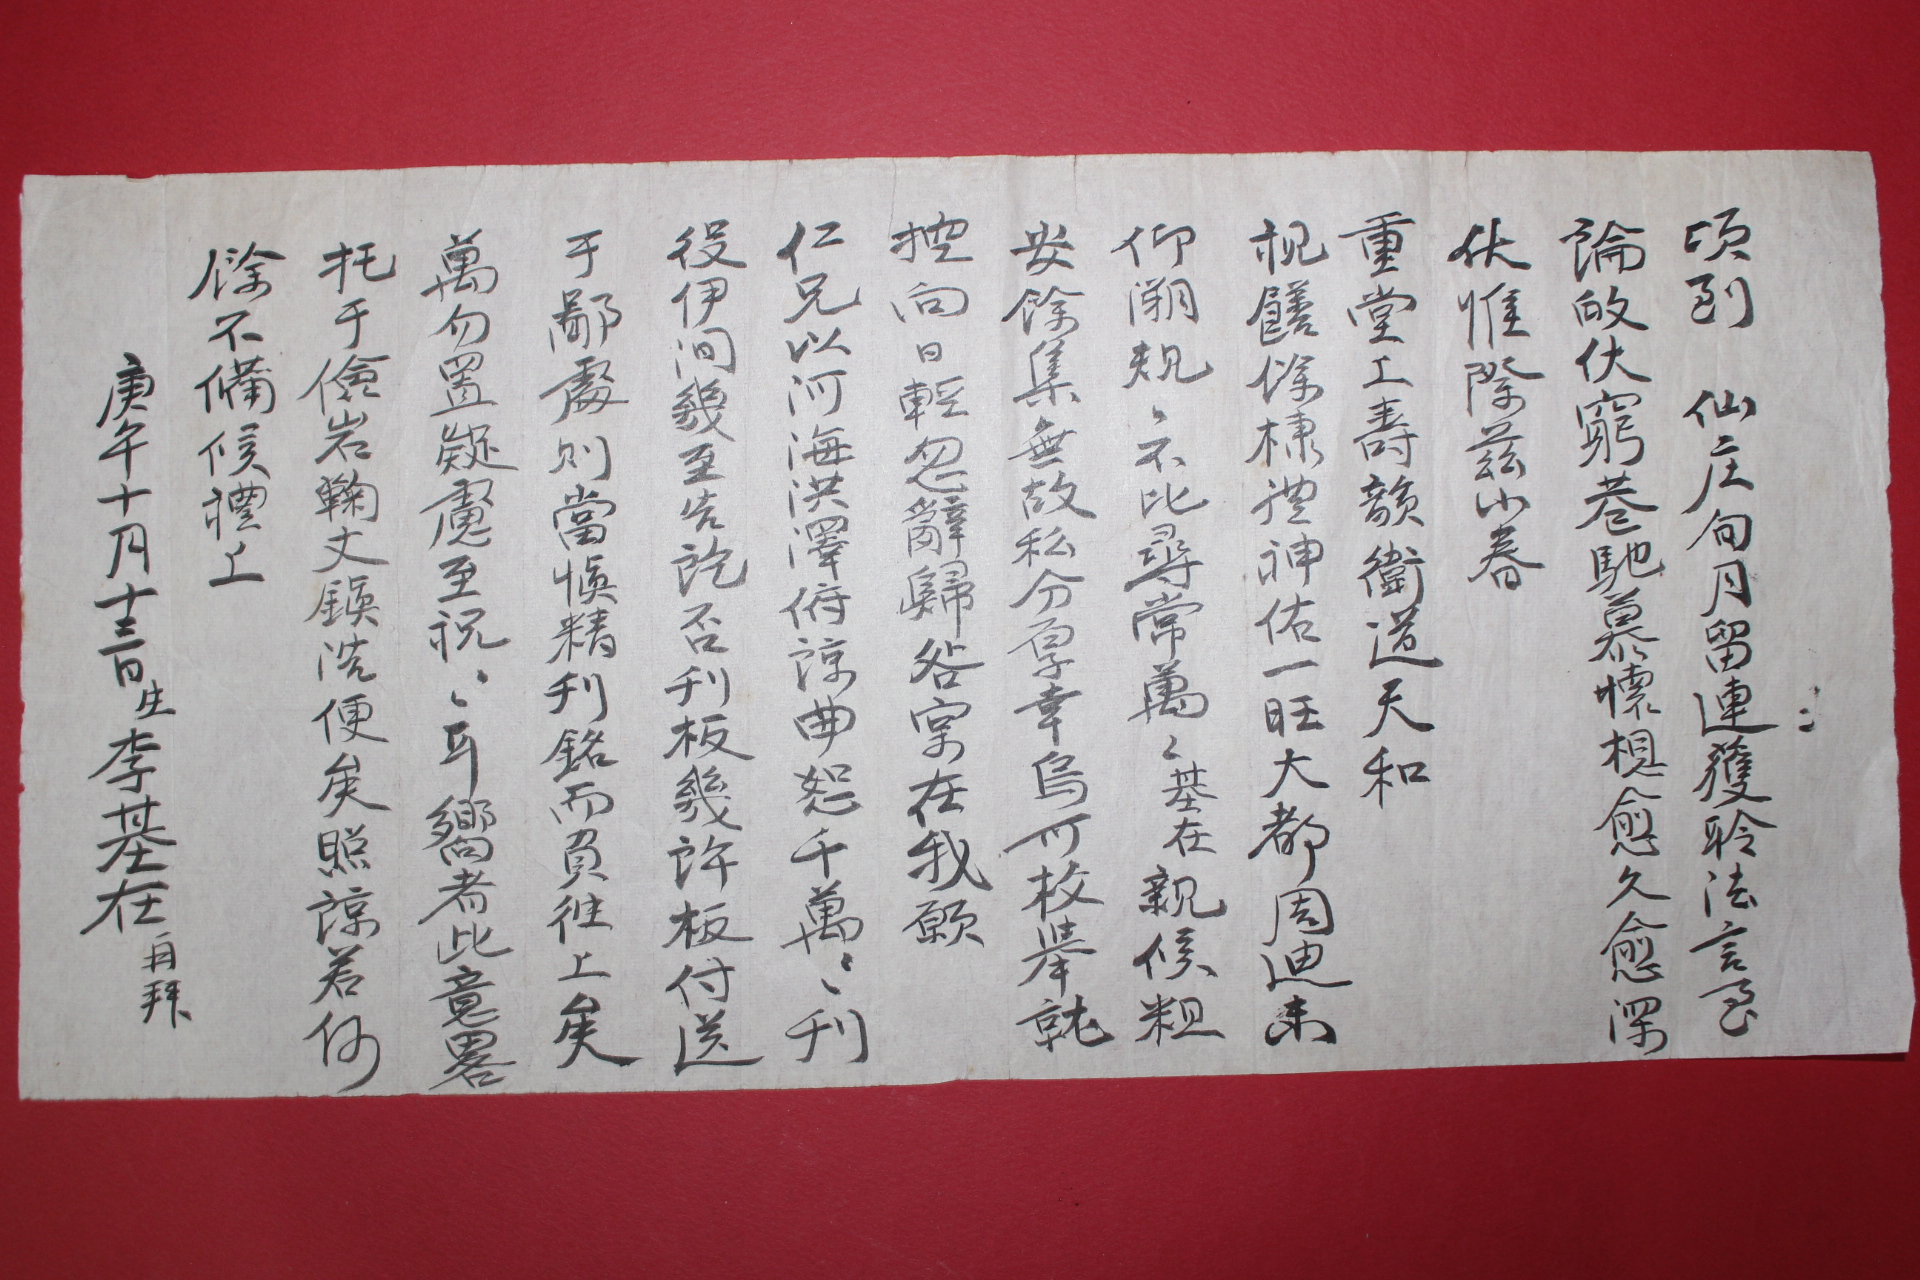 頃到 仙庄旬月留連獲聆法言至
論的伏窮巷馳慕懷想愈久愈深
伏惟際玆小春
重堂上壽韻衛道天和
棣禮神佑一旺大都周迪
仰溯規〻不比尋常萬〻基在親候粗
安餘集無故私分厚幸烏可枚擧就
控向日輕忽辭歸咎實在我願
仁兄以河海洪澤俯諒曲恕千萬〻刊
役伊間幾至告訖否刊板幾許板付送
于鄙處則當愼精刊銘而負往上矣
萬勿置疑慮至祝〻耳嚮者此意畧
托于儉岩鞠丈鎭浩便矣照諒若何
餘不備候禮上
庚午十月十三日生李基在再拜